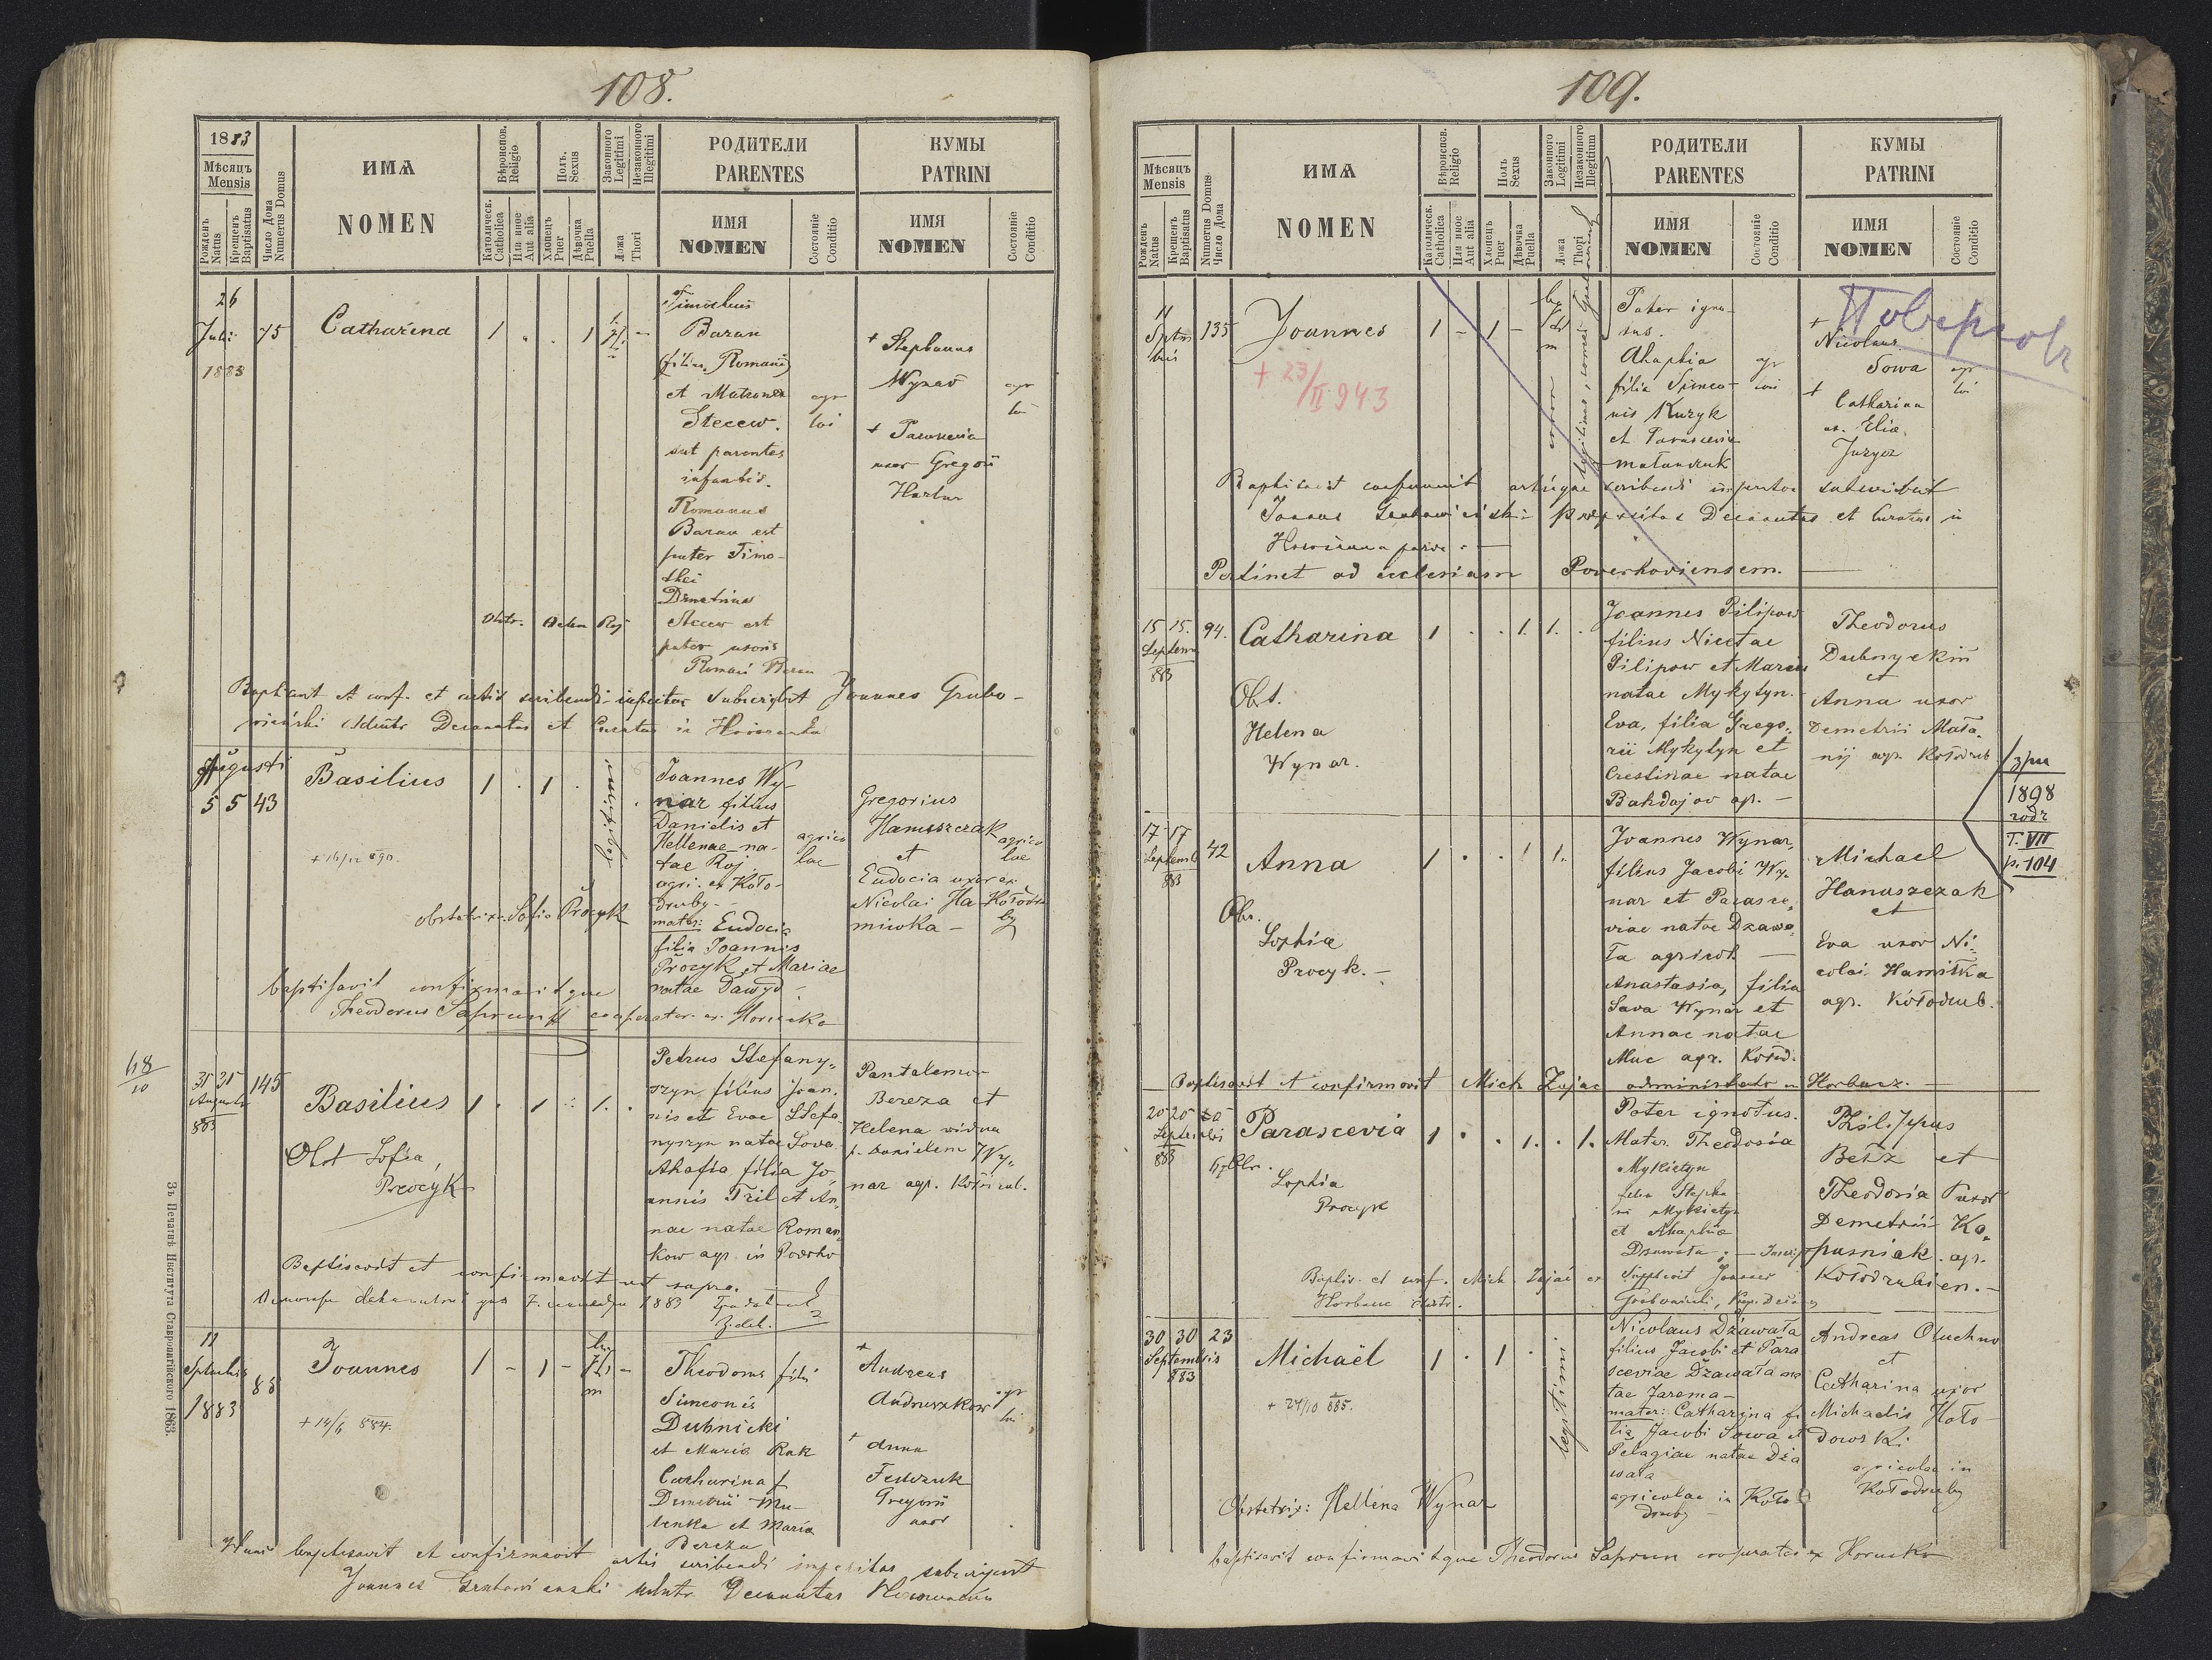 108.
1883
Мѣсяцъ
Mensis
Рожденъ
Natus
Крещенъ
Baptisatus
Число Дома
Numerus Domus
ИМѦ
NOMEN
Вѣроиспов.
Religio
Католическ.
Catholica
Или иное
Aut alia
Полъ.
Sexus
Хлопецъ
Puer
Дѣвочка
Puella
Законного
Legitimi
Незаконного
Illegitimi
Ложа
Thori
РОДИТЕЛИ
PARENTES
ИМЯ
NOMEN
Состояніе
Conditio
КУМЫ
PATRINI
ИМЯ
NOMEN
Состояніе
Conditio
26
Juli
1883
75
Catharina
1 . . 1
Timotheus
Baran
(filius Romani)
et Matrona
Stecew.
sut parentes
infantis.
Romanus
Baran est
pater Timo-
thei
Demetrius
Stecew est
pater uxoris
Romani Baran
+ Stephanus
Wynar
+ Parascevia
uxor Gregorii
Hartur
Obstr. Roj
Bapt. et conf. et artis scribendi imperitos subscripsit Joannes Grabo-
wieński Admtr Decanatus et Curatus in Horożanka
Augusti
5 5 43
Basilius
1 . 1 .
legitimi
+ 16/12 890.
Joannes Wy-
nar filius
Danielis et
Hellenae na-
tae Roj
agri. ex Koło-
druby.-
mater: Eudocia
filia Joannis
Procyk et Mariae
natae Dawyd
agrico
lae
Gregorius
Hanuszczak
et
Eudocia uxor
Nicolai Ha-
miwka -
agrico
lae
Kołodru
by
obstetrix Sofia Procyk
baptisavit confirmavitque
Theodorus Saprun cooperator ex Horucko
68
10
31 31 145
Augusti
883
Basilius
1 . 1 . 1. .
Obst Sofia,
Procyk
Petrus Stefany-
szyn filius Joan-
nis et Evae Stefa
nyszyn natae Sowa.
Ahafia filia Jo-
annis Tril et An-
nae natae Roman
kow agr. in Powerho
Pantalemon
Bereza et
Helena vidua
p. Danielem Wy-
nar agr. Kołodrub.
Baptisavit et confirmavit ut supra.
1883
11
Septembris
1883
88
Joannes
1 - 1 -
+ 14/6 884.
Theodorus fili
Simeonis
Dubnicki
et Maria Rak
Catharina f
Demetrii Mu-
senka et Maria
Bereza
+ Andreas
Andruszkow
+ Anna
Fedczuk
Gregorii
uxor
agr
lui
Hunc baptisavit et confirmavit artis scribendi imperitos subscripsit
Joannes Grabowienski Admtr Decanatus
Зъ Печатнѣ Института Ставропигійского 1863.
109.
Мѣсяцъ
Mensis
Рожденъ
Natus
Крещенъ
Baptisatus
Numerus Domus
Число Дома
ИМѦ
NOMEN
Вѣроиспов.
Religio
Католическ.
Catholica
Или иное
Aut alia
Полъ
Sexus
Хлопецъ
Puer
Дѣвочка
Puella
Законного
Legitimi
Незаконного
Illegitimi
Ложа
Thori
РОДИТЕЛИ
PARENTES
ИМЯ
NOMEN
Состояніе
Conditio
КУМЫ
PATRINI
ИМЯ
NOMEN
Состояніе
Conditio
11
Septem
bris
135
Joannes
1 - 1 -
+ 23/II 943
Pater igno-
tus.
Ahaphia
filia Simeo-
nis Kuzyk
et Parascevia
+
Nicolaus
Sowa
+
Catharina
ux. Eliae
Baptisavit confirmavit artisque scribendi imperitos subscribit
Joannes Decanatus et Curatus in
Pertinet ad ecclesiam Powerhoviensem.
15 15. 94.
Septem
883
Catharina
1 . . 1. 1. .
Obst.
Helena
Wynar.
Joannes Pilipow
filius Nicetae
Pilipow et Mariae
natae Mykytyn.-
Eva, filia Grego-
rii Mykytyn et
Crestinae natae
Bahdajow ag. -
Theodorus
Dubnyckiii
et
Anna uxor
Demetrii Mała-
nij agr. Kołodrub
1898
T. VII
p. 104
17 17 42
Septemb
883
Anna
1 . . 1 1.
Obs.
Sophia
Procyk. -
Joannes Wynar,
filius Jacobi Wy-
nar et Parasce-
viae natae Dzawa-
ła agricol. -
Anastasia, filia
Sava Wynar et
Annae natae
Muc agr. Kołod.
Michael
Hanuszczak
et
Eva uxor Ni-
colai Hamiłka
agr. Kołodrub.
Baptisavit et confirmavit Mich Zajac administrator in Horbacz.
20 20
Septembri
883
Parascevia
1 . . 1. . 1.
Obs.
Sophia
Procyk
Pater ignotus.
Mater. Theodosia
Mykietyn
filia Stepha-
ni Mykietyn
et Ahaphia
Dzawała
Phil. Jepus
Bełz et
Theodosia uxor
Demetrii Ka-
pusniak. agr.
Kołodrubien.-
Baptis. et conf. Mich. Zajac ex
Horbacz
30 30 23
Septembris
883
Michaël
1 . 1 .
legitimi
+ 27/10 885.
Nicolaus Dżawała
filius Jacobi et Para
sceviae Dżawała na
tae Jarema -
mater: Catharina fi
lia Jacobi Sowa et
Pelagiae natae Dża
wała
agricolae in Koło
druby
Andreas Oluchno
et
Catharina uxor
Michaelis Hoło-
dowski
agricolae in
Kołodruby
Obstetrix: Hellena Wynar
baptisavit confirmavitque Theodorus Saprun cooperator ex Horucko